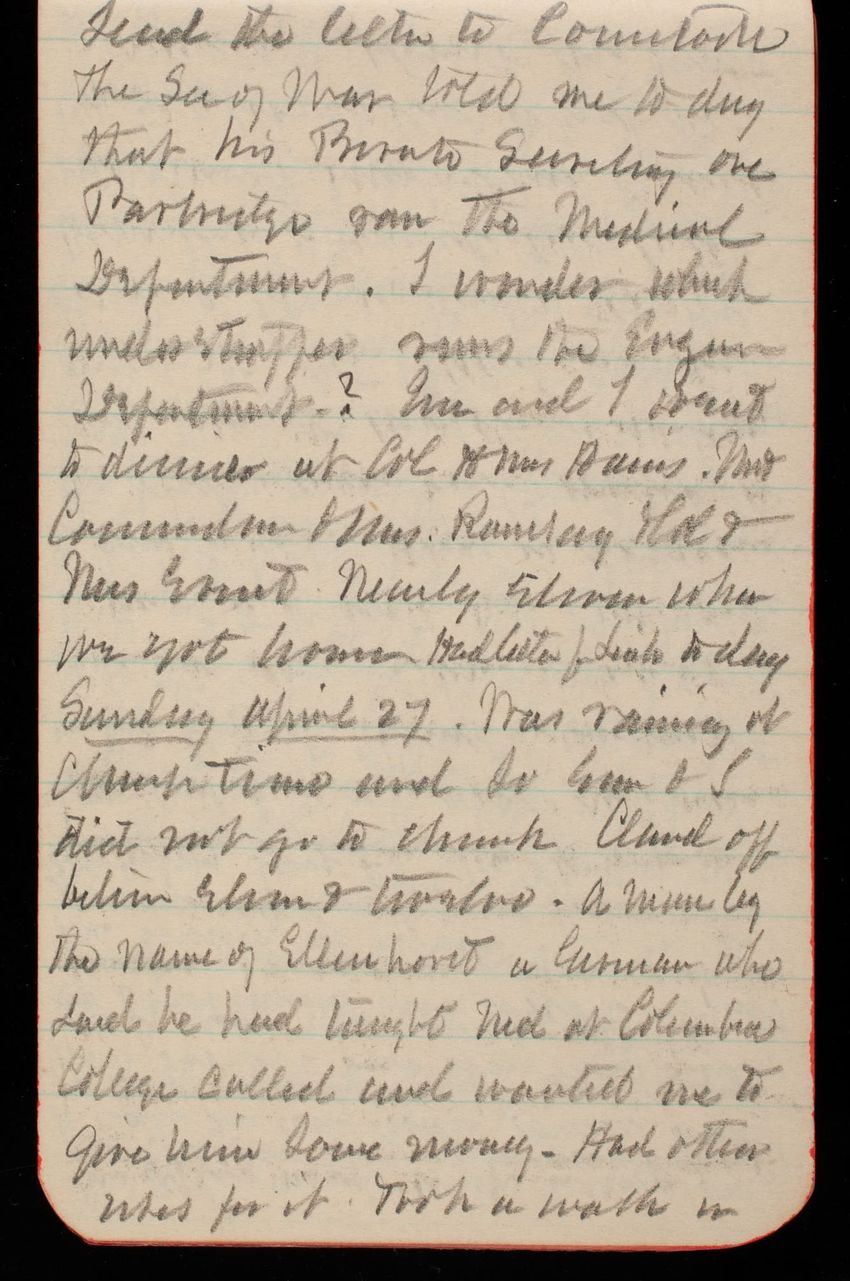 Send the letter to Comstock
The Sec of War told me to day
that his Private Secretary one
Partridge ran the Medical
Department. I wonder which
understrapper runs the Engineer
Department.? Em and I went
to dinner at Col & Mrs Hains. Met
Commodore & Mrs. Ramsay Col &
Mrs Ernst Nearly Eleven when
we got home Had letter f Link to day
Sunday April 27. Was raining at
Church time and so Em & I
did not go to church Cleared off
between Eleven & twelve - A man by
the name of Ellenhorst a German who
said he had taught Ned at Columbia
College called and wanted me to
give him some money - Had other
uses for it. Took a walk in